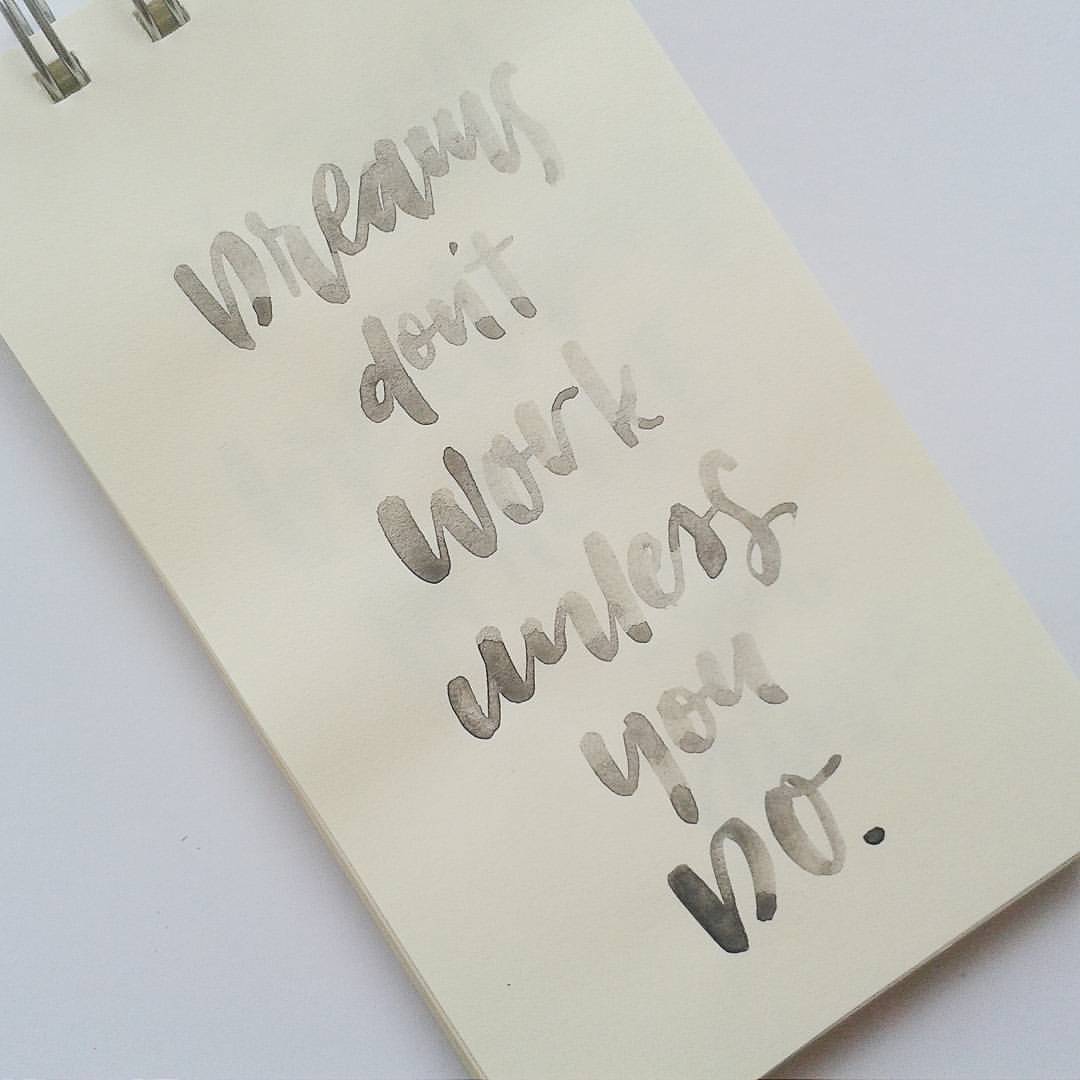 Dreams
don't
work
unless
you
DO.